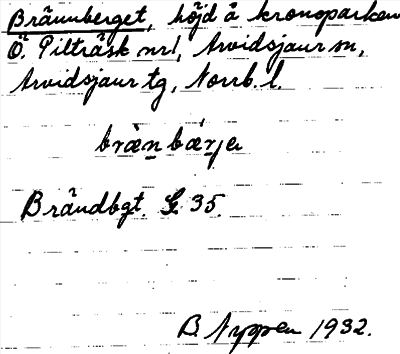 Brännberget, höjd å kronoparken
Ö. Pilträsk nr1, Arvidsjaur sn,
Arvidsjaur tg, Norrb. l.
bræ̀n bǽrje
Brändbgt. G. 35.
B. Nyppen 1932.